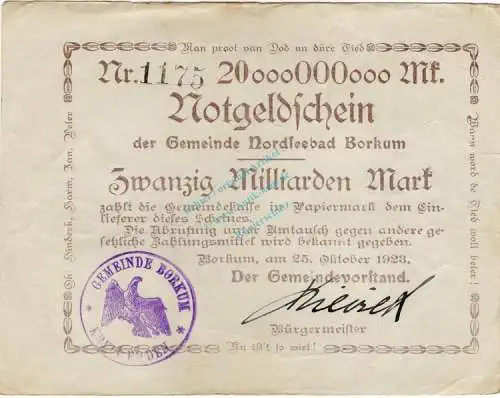 Man proot van Dod un düre Tied
Nr. 1175 20000000000 Mk.
Notgeldschein
der Gemeinde Nordseebad Borkum
Zwanzig Milliarden Mark
zahlt die Gemeindekasse in Papiermark dem Ein-
lieferer dieses Scheines.
Die Abrufung unter Umtausch gegen andere ge-
setzliche Zahlungsmittel wird bekannt gegeben.
Borkum, am 25. Oktober 1923.
Der Gemeindevorstand.
Bürgermeister
GEMEINDE BORKUM
EMDEN
Oh Hinderk, Harm, Jan, Peter
Wann word de Tied moll beter!
Nu is't so wiet!